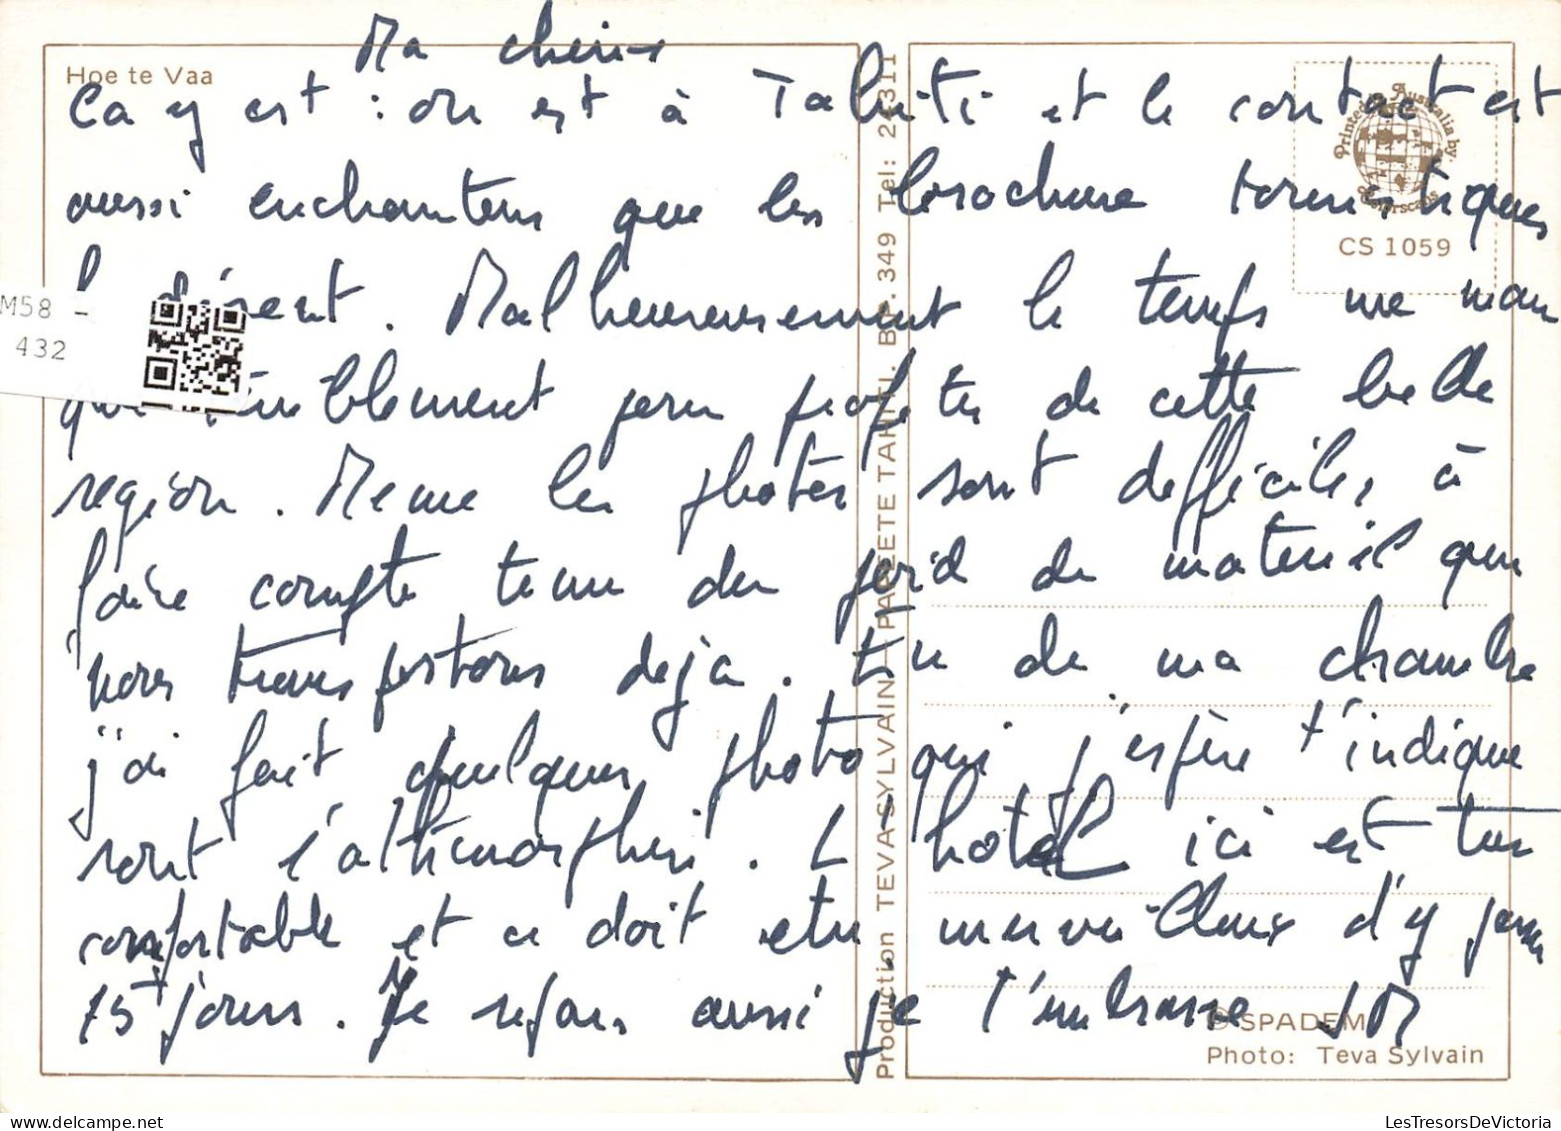 Hoe te Vaa
Ma chérie
Ca y est : on est à Tahiti et le contact est
aussi enchanteur que les brochure touristiques
le disent. Malheureusement le temps me man
que terriblement pour profiter de cette belle
region. Meme les photos sont difficiles à
faire compte tenu du poid de materiel que
nous transportons deja. Vu de ma chambre
j'ai fait quelques photo qui j'espère t'indique
ront l'atmosphere. L hotel ici est tres
confortable et ce doit etre merveilleux d'y passer
15 jours. Je
aussi je t'embrasse JM
Production TEVA SYLVAIN - PAPEETE TAHITI. B.P. 349 Tel: 24311
Printed in Australia by Colorscans
CS 1059
© SPADEM
Photo: Teva Sylvain
M58 -
432
LesTresorsDeVictoria